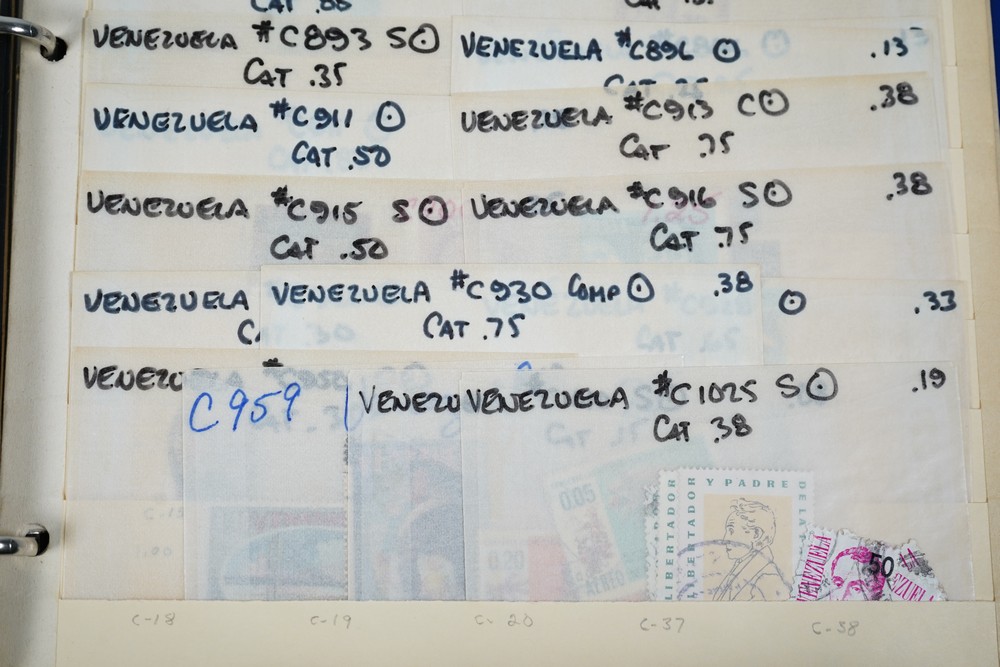 VENEZUELA #C893 S⊙
CAT .35
VENEZUELA #C896 ⊙ .13
VENEZUELA #C911 ⊙
CAT .50
VENEZUELA #C913 C⊙ .38
CAT .75
VENEZUELA #C915 S⊙
CAT .50
VENEZUELA #C916 S⊙ .38
CAT .75
VENEZUELA
VENEZUELA #C930 COMP ⊙ .38
CAT .75
⊙ .33
C959
VENEZUELA #C1025 S⊙ .19
CAT .38
0.05
0.20
LIBERTADOR
LIBERTADOR Y PADRE DE LA
VENEZUELA
50
C-18 C-19 C-20 C-37 C-38